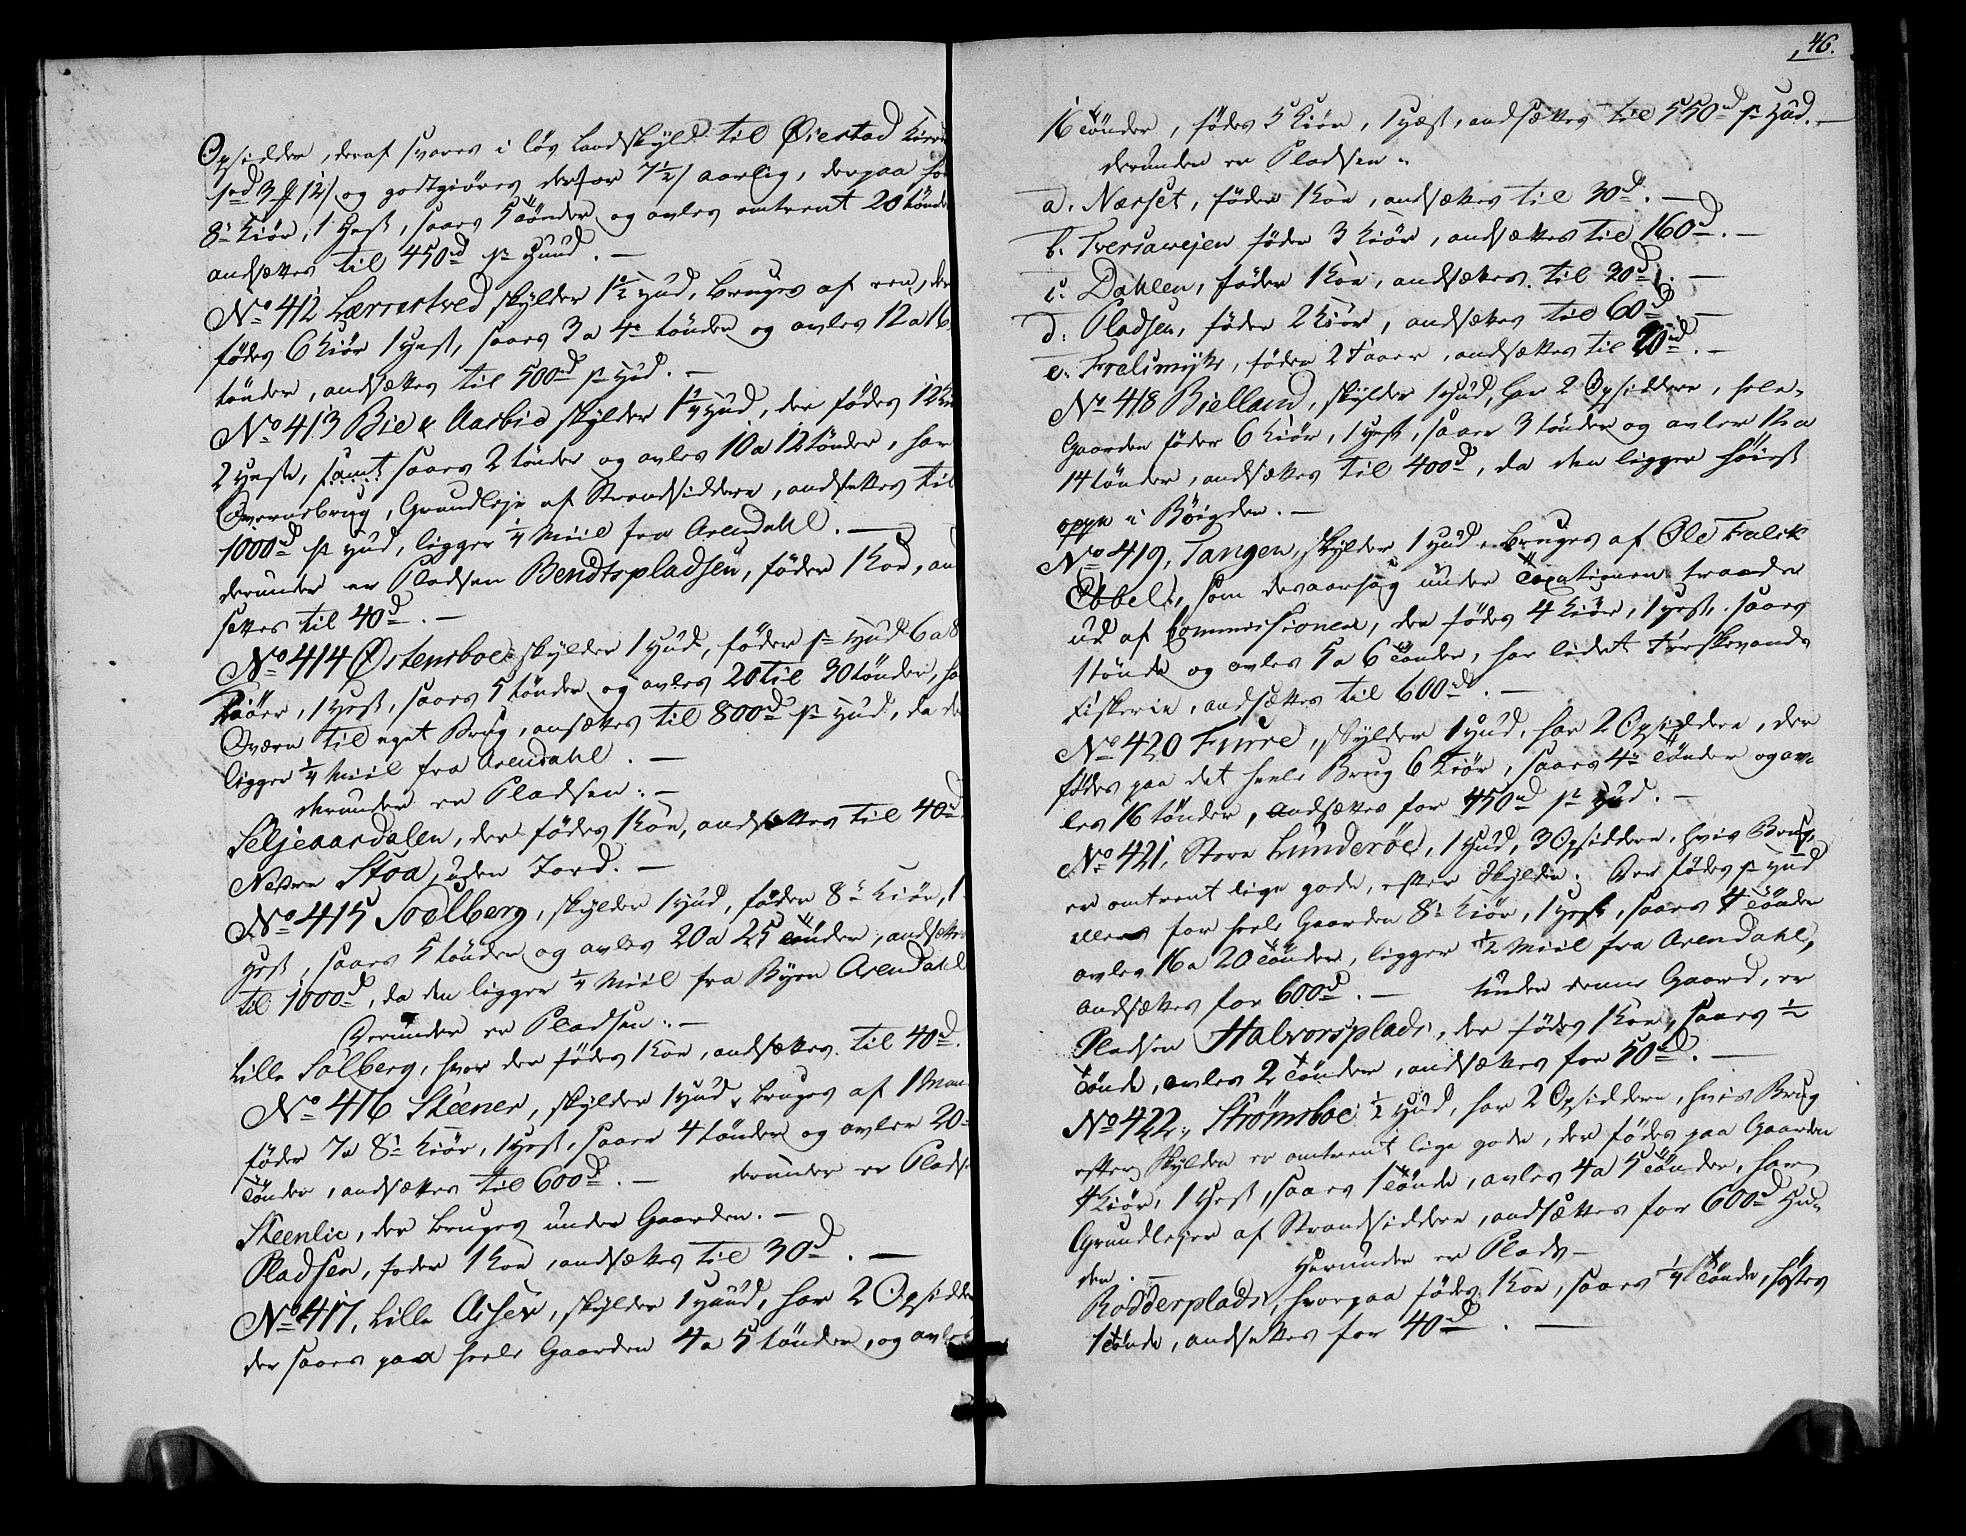 Opsidder, deraf svares i løs Landskyld til Øiestad Kirke
1rd 3 ƒ 12/ og godtgiöres derfor 7½/ aarlig, derpaa fö
8te Kiör, 1 Hest, saaes 5 tönder og avles omtrent 20 tönd
andsættes til 450rd pr Huud. —
No 412 Lærrestved skylder 1½ Hud, bruges af een, der
födes 6 Kiör 1 Hest, saaes 3 a 4re tönder og avles 12 a 16
tönder, andsættes til 500rd pr Hud. —
No 413 Bie & Aasbie skylder 1¼ Hud, der födes 12 Kiö
2 Heste, samt saaes 2 tönder og avles 10 a 12 tönder, har
Qværnebrug, Grundleje af Strandsiddere, andsættes til
1000rd pr Hud, ligger ¼ Miil fra Arendahl. —
derunder er Pladsen Bendtspladsen, föder 1 Koe, and
settes til 40rd. —
No 414 Østensboe skylder 1 Hud, föder pr Hud 6 a 8
Kiöer, 1 Hest, saaes 5 tönder og avles 20 til 30 tönder, ha
Qværn til eget Brug, ansættes til 800rd pr Hud, da de
ligger ¼ Miil fra Arendahl. —
derunder er Pladsen: —
Seljeaardalen, der födes 1 Koe, andsættes til 40rd
Nedre Stoa, uden Jord. —
No 415 Soelberg, skylder 1 Hud, föder 8te Kiör, 1
Hest, saaes 5 tönder og avles 20 a 25 tönder, andsætte
til 1000rd, da den ligger ¼ Miil fra Byen Arendahl
Derunder er Pladsen: —
Lille Solberg, hvor der födes 1 Koe, andsættes til 40rd.
No 416 Steener, skylder 1 Hud, bruges af 1 Man
föder 7 a 8te Kiör, 1 Hest, saaer 4 tönder og avler 20
tönder, andsættes til 600rd. — derunder er Pladse
Steenlie, der bruges under Gaarden. —
Pladsen, foder 1 Koe, andsættes til 30rd. —
No 417, Lille Asser, skylder 1 Huud, har 2 Opsidde
der saaes paa heele Gaarden 4 a 5 tönder, og avles
46.
16 tönder, födes 5 Kiör, 1 Hest, andsættes til 550rd pr Hud. —
derunder er Pladsen:
a. Næset, föder 1 Koe, andsættes til 30rd. —
b. Tversavejen föder 3 Kiör, andsættes til 160rd. —
c. Dahlen, föder 1 Koe, andsættes til 30rd. —
d. Pladsen, föder 2 Kiör, andsættes til 60rd. —
e. Frelsmyr, föder 2 Faaer, andsættes til 20rd. —
No 418 Bielland, skylder 1 Hud, har 2 Opsiddere, hele
Gaarden föder 6 Kiör, 1 Hest, saaer 3 tönder og avler 12 a
14 tönder, andsættes til 400rd, da den ligger höiest
oppe i Böigden. —
No 419, Tangen, skylder 1 Hud, bruges af Ole Falck
Ebbell, som desaarsag under Taxationen traader
ud af Commissionen, der födes 4 Kiör, 1 Hest, saaes
1 tönde og avles 5 a 6 tönder, har lidet Ferskevands
Fiskerie, andsættes til 600rd. —
No 420 Furre, skylder 1 Hud, har 2 Opsiddere, der
födes paa det heele Brug 6 Kiör, saaes 4re tönder og av-
les 16 tönder, andsættes for 450rd pr Hud. —
No 421, Store Lunderöe, 1 Hud, 3 Opsiddere, hvis Brug
er omtrent lige gode, efter Skylden. Der födes pr Hud
eller for heele Gaarden 8te Kiör, 1 Hest, saaes 4 tönder
avles 16 a 20 tönder, ligger ½ Miil fra Arendahl,
andsættes for 600rd. — Under denne Gaard, er
Pladsen Halvorsplads, der födes 1 Koe, saaes ½
tönde, avles 2 tönder, andsættes for 50rd. —
No 422, Strömsboe ½ Hud, har 2 Opsiddere, hvis Brug
efter Skylden er omtrent lige gode, der födes paa Gaarden
4 Kiör, 1 Hest, saaes 1 tönde, avles 4 a 5 tönder, har
Grundlejer af Strandsiddere, andsættes for 600rd Hu-
den. — Herunder er Plads —
Rodderplads, hvorpaa födes 1 Koe, saaes ¼ tönde, höstes
1 tönde, andsættes for 40rd. —